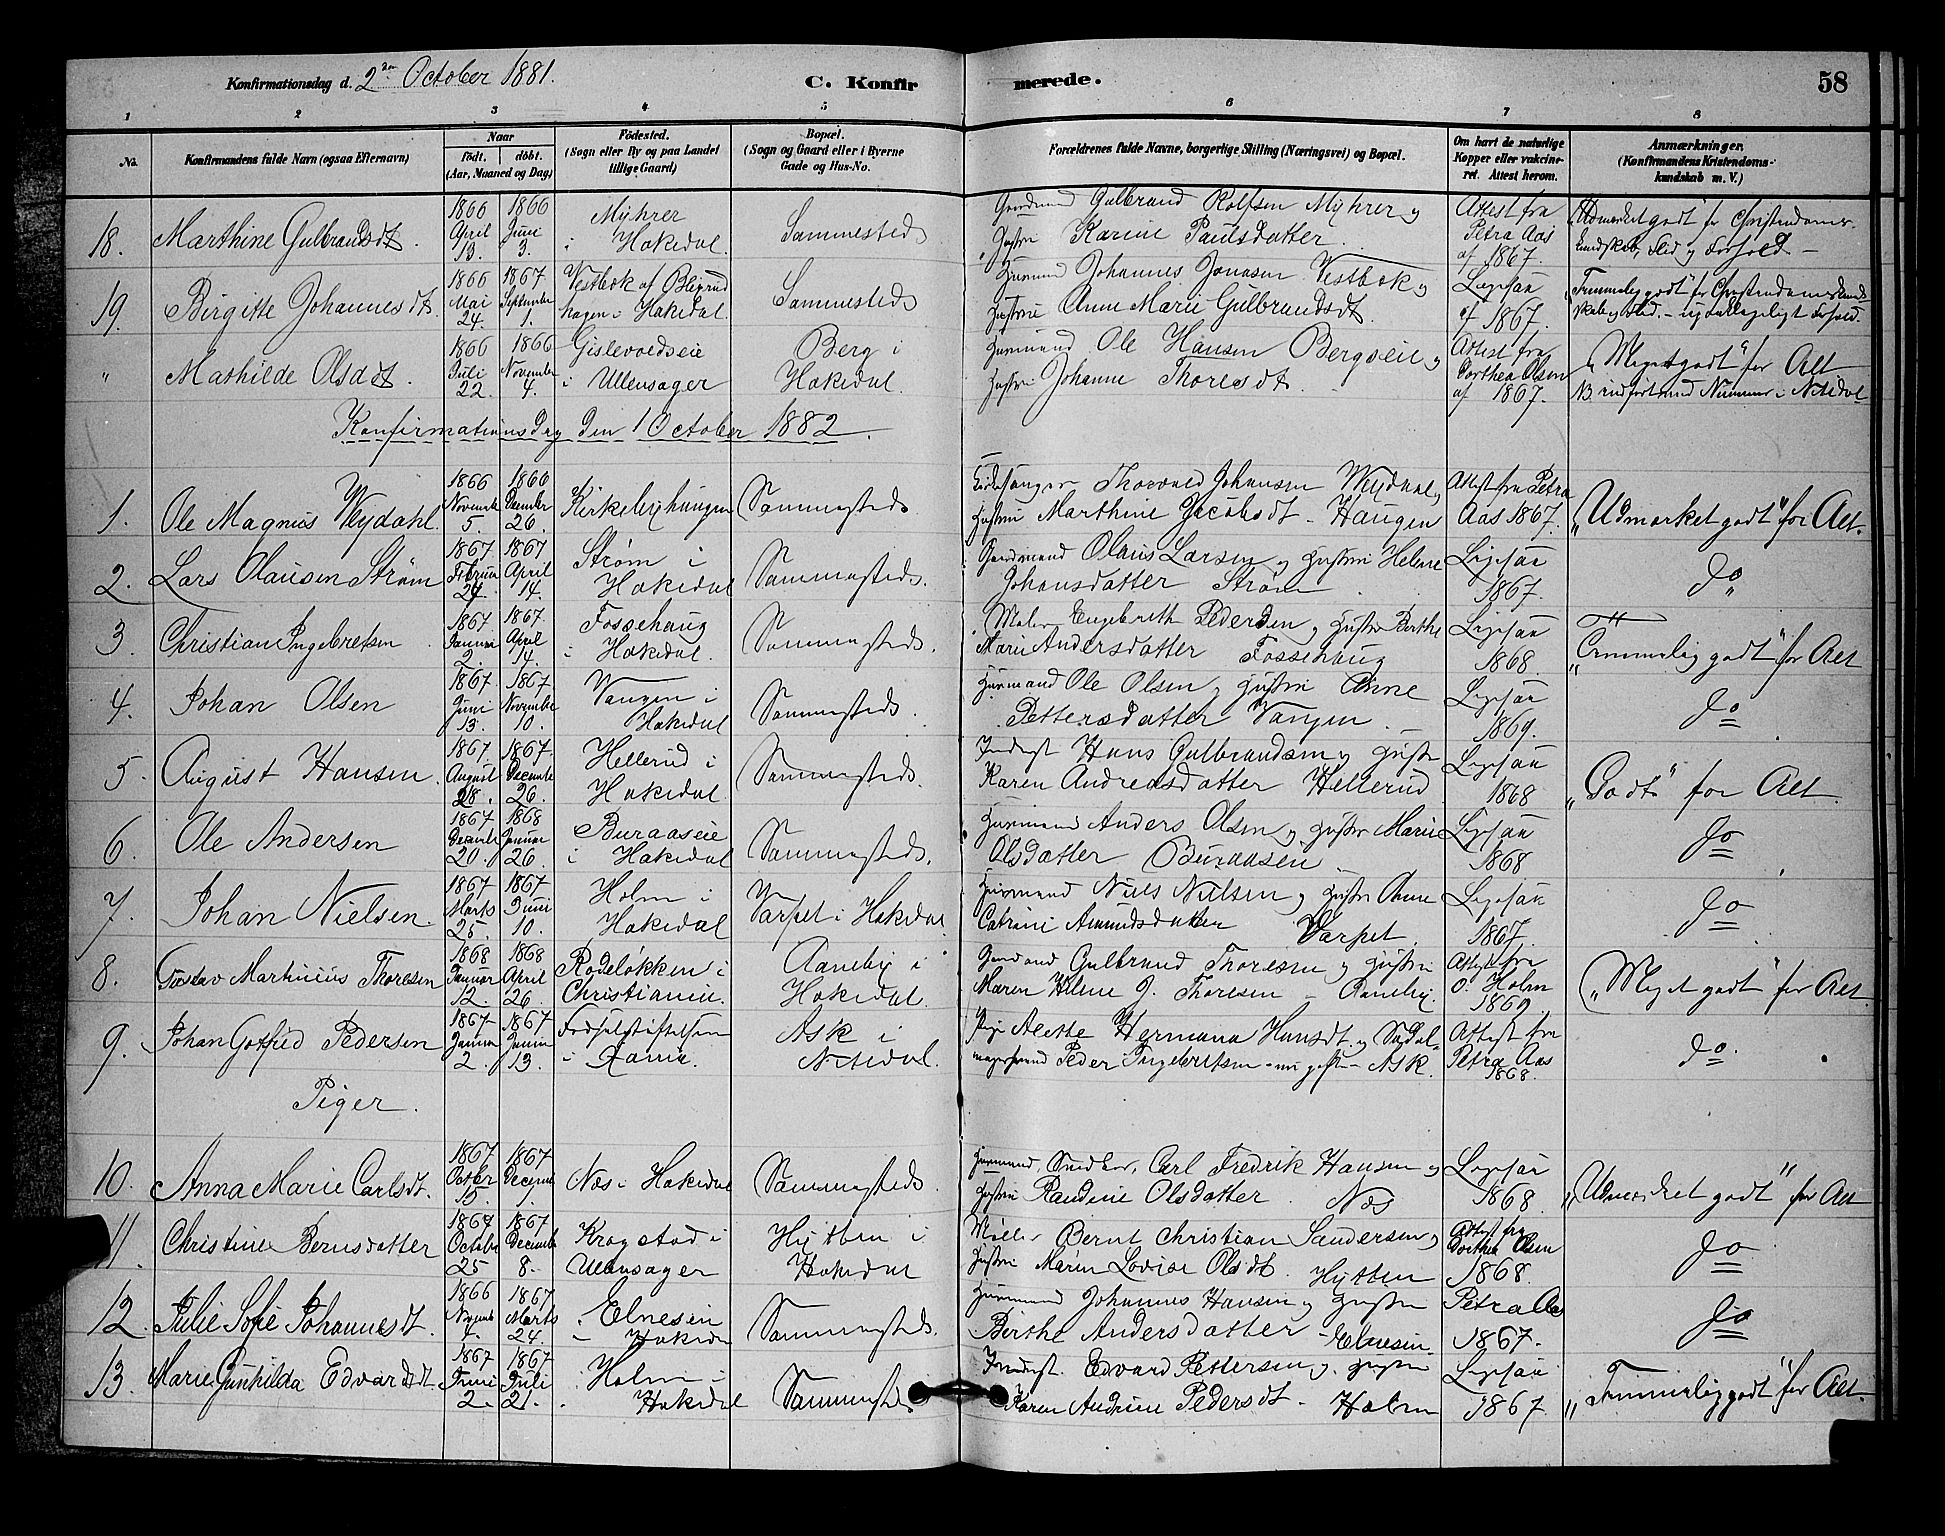 Konfirmationsdag d. 2den October 1881.
C. Konfirmerede.
58
1 2 3 4 5 6 7 8
No.
Konfirmandens fulde Navn (ogsaa Efternavn)
Naar
födt. döbt.
(Aar, Maaned og Dag)
Födested.
(Sogn eller By og paa Landet
tillige Gaard)
Bopæl.
(Sogn og Gaard eller i Byerne
Gade og Hus-No.
Forældrenes fulde Navne, borgerlige Stilling (Næringsvei) og Bopæl.
Om havt de naturlige
Kopper eller vaccine-
ret. Attest herom.
Anmærkninger.
(Konfirmandens Kristendoms-
kundskab m. V.)
18. Marthine Gulbrandsdt. 1866 April 13. 1866 Juni 3. Myhrer i Hakedal. Sammesteds
Gaardmand Gulbrand Rolfsen Myhrer og
Hustru Karine Paulsdatter.
Attest fra Petra Aas af 1867.
"Udmærket godt" for Christendoms-
kundskab, Flid og Forhold -
19. Birgitte Johannesdt. 1866 Mai 24. 1867 September 1. Vestbek af Bleirud hagen i Hakedal Sammesteds
Husmand Johannes Jonasen Vestbek og
Hustru Anne Marie Gulbrandsdt.
Ligesaa af 1867.
"Temmelig godt" for Christendomskund-
skab og Flid.
" Mathilde Olsdt. 1866 Juli 22. 1866 November 4. Gislevoldseie i Ullensager Berg i Hakedal.
Husmand Ole Hansen Bergseie og
Hustru Johanne Thoresdt.
Attest fra Dorthea Olsen af 1867.
"Meget godt" for Alt
NB. indført med Nummer i Nitedal
Konfirmationsdag den 1 October 1882.
1. Ole Magnus Weydahl. 1866 November 5. 1866 December 26. Kirkebyhaugen Sammesteds
Kirkesanger Thorvald Johansen Weydahl og
Hustru Marthine Jacobsdt - Haugen
Attest fra Petra Aas 1867.
"Udmærket godt" for Alt.
2. Lars Olausen Strøm 1867 Februar 24. 1867 April 14. Strøm i Hakedal Sammesteds.
Gaardmand Olaus Larsen og Hustru Helene
Johansdatter Strøm
Ligesaa 1867.
do
3 Christian Ingebretsen 1867 Januar 2. 1867. April 14. Fossehaug i Hakedal. Sammesteds.
Maler Engebreth Pedersen og Hustru Berthe
Marie Andersdatter Fossehaug
Ligesaa 1868
"Temmelig godt" for Alt
4. Johan Olsen 1867 Juni 13. 1867 November 10. Vangen i Hakedal Sammesteds.
Husmand Ole Olsen og Hustru Anne
Pettersdatter Vangen
Ligesaa 1869.
do
5. August Hansen 1867 August 28. 1867. December 26. Hellerud i Hakedal. Sammesteds.
Inderst Hans Gulbrandsen og Hustru
Karen Andreasdatter Hellerud
Ligesaa 1868
"Godt" for Alt.
6. Ole Andersen 1867 December 20. 1868 Januar 26. Buraaseie i Hakedal Sammesteds.
Husmand Anders Olsen og Hustru Marie
Olsdatter Buraaseie
Ligesaa 1868
do
7. Johan Nielsen. 1867 Marts 25. 1867 Juni 10. Holm i Hakedal Varpet i Hakedal
Husmand Niels Nielsen og Hustru Anne
Catrine Amundsdatter Varpet.
Ligesaa 1867.
do
8. Gustav Martinius Thoresen 1868 Januar 12. 1868 April 26. Rodeløkken i Christiania. Aaneby i Hakedal.
Gulbrand Thoresen og Hustru
Maren Helene G. Thoresen - Aaneby.
Attest fra O. Holm 1869
"Meget godt" for Alt
9. Johan Gotfred Pedersen 1867 Januar 2. 1867 Januar 13. Fødselsstiftelsen i Xania. Ask i Nitedal.
Pige Alethe Hermana Hansdt. og Sadel-
magersvend Peder Ingebretsen - nu gift - Ask.
Attest fra Petra Aas 1868.
do.
Piger.
10. Anna Marie Carlsdt. 1867 October 15 1867 December 1. Næs i Hakedal Sammesteds.
Husmand, Snedker, Carl Fredrik Hansen og
Hustru Randine Olsdatter. Næs
Ligesaa 1868.
"Udmærket godt" for Alt
11. Christine Berntsdatter 1867 October 25 1867 December 8. Krogstad i Ullensager Hytten i Hakedal
Møller Bernt Christian Sandersen og
Hustru Maren Lovise Olsdt. Hytten
Attest fra Dorthea Olsen 1868.
do
12. Julie Sofie Johannesdt. 1866 Novemb 4. 1867 Marts 24. Elneseie i Hakedal Sammesteds.
Husmand Johannes Hansen og Hustru
Berthe Andersdatter - Elneseie
Petra Aas 1867.
do
13. Marie Gunhilda Edvardsdt. 1867 Juni 2. 1867 Juli 21. Holm i Hakedal Sammesteds.
Inderst Edvard Pettersen og Hustru
Karen Andrine Pedersdt. - Holm
Ligesaa 1867.
"Temmelig godt" for Alt.